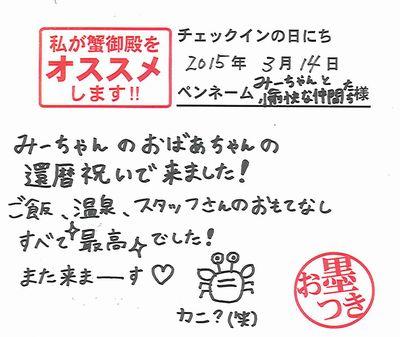 私が蟹御殿を
オススメ
します!!
チェックインの日にち
2015年 3月14日
ペンネーム みーちゃんと愉快な仲間たち様
みーちゃんのおばあちゃんの
還暦祝いで来ました!
ご飯、温泉、スタッフさんのおもてなし
すべて最高でした!
また来まーーす♡
カニ?(笑)
お墨つき